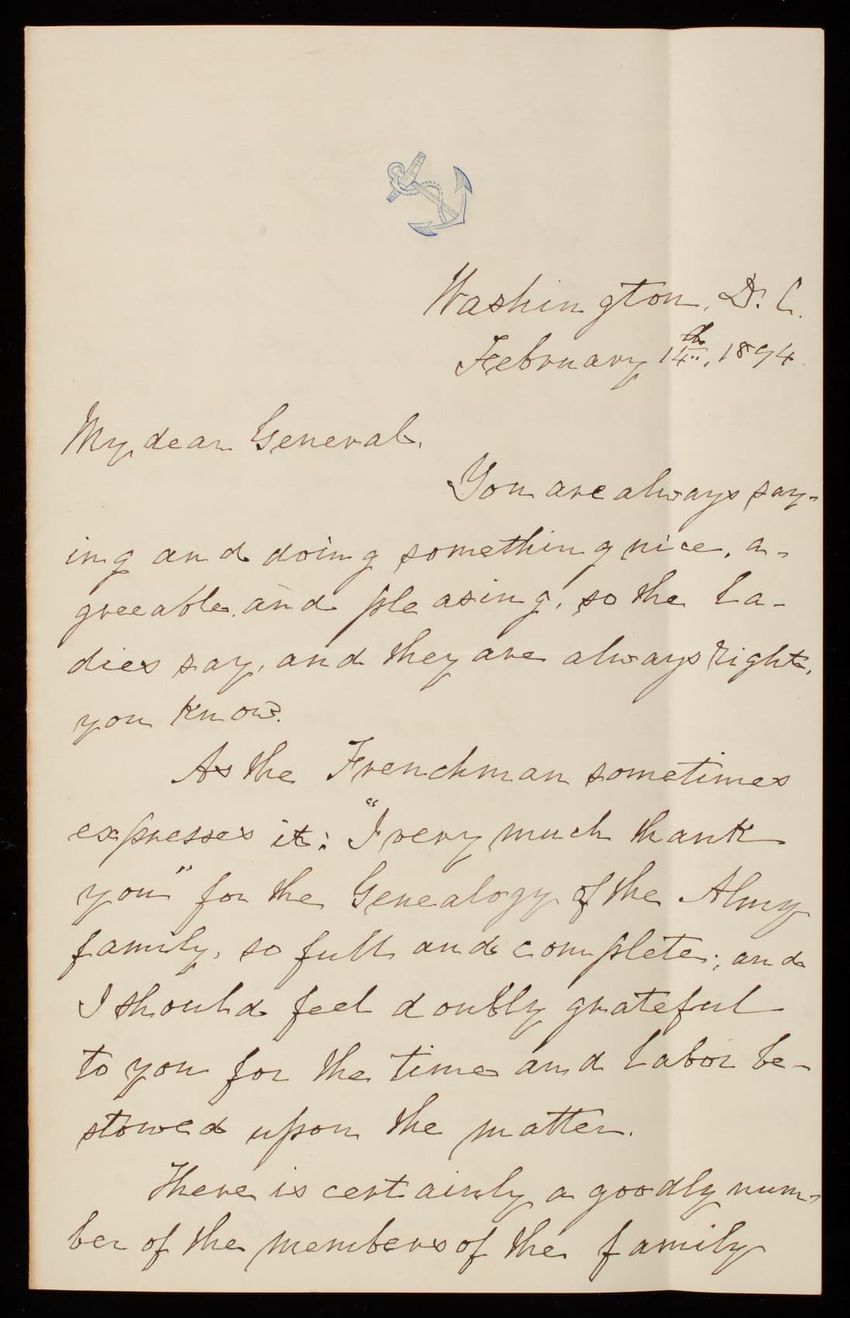 Washington, D. C.
February 14th, 1894.
My dear General,
You are always say-
ing and doing something nice, a-
greeable and pleasing, so the La-
dies say, and they are always right,
you know.
As the Frenchman sometimes
expresses it: "I very much thank
you" for the Genealogy of the Almy
family, so full and complete; and
I should feel doubly grateful
to you for the time and labor be-
stowed upon the matter.
There is certainly a goodly num-
ber of the members of the family